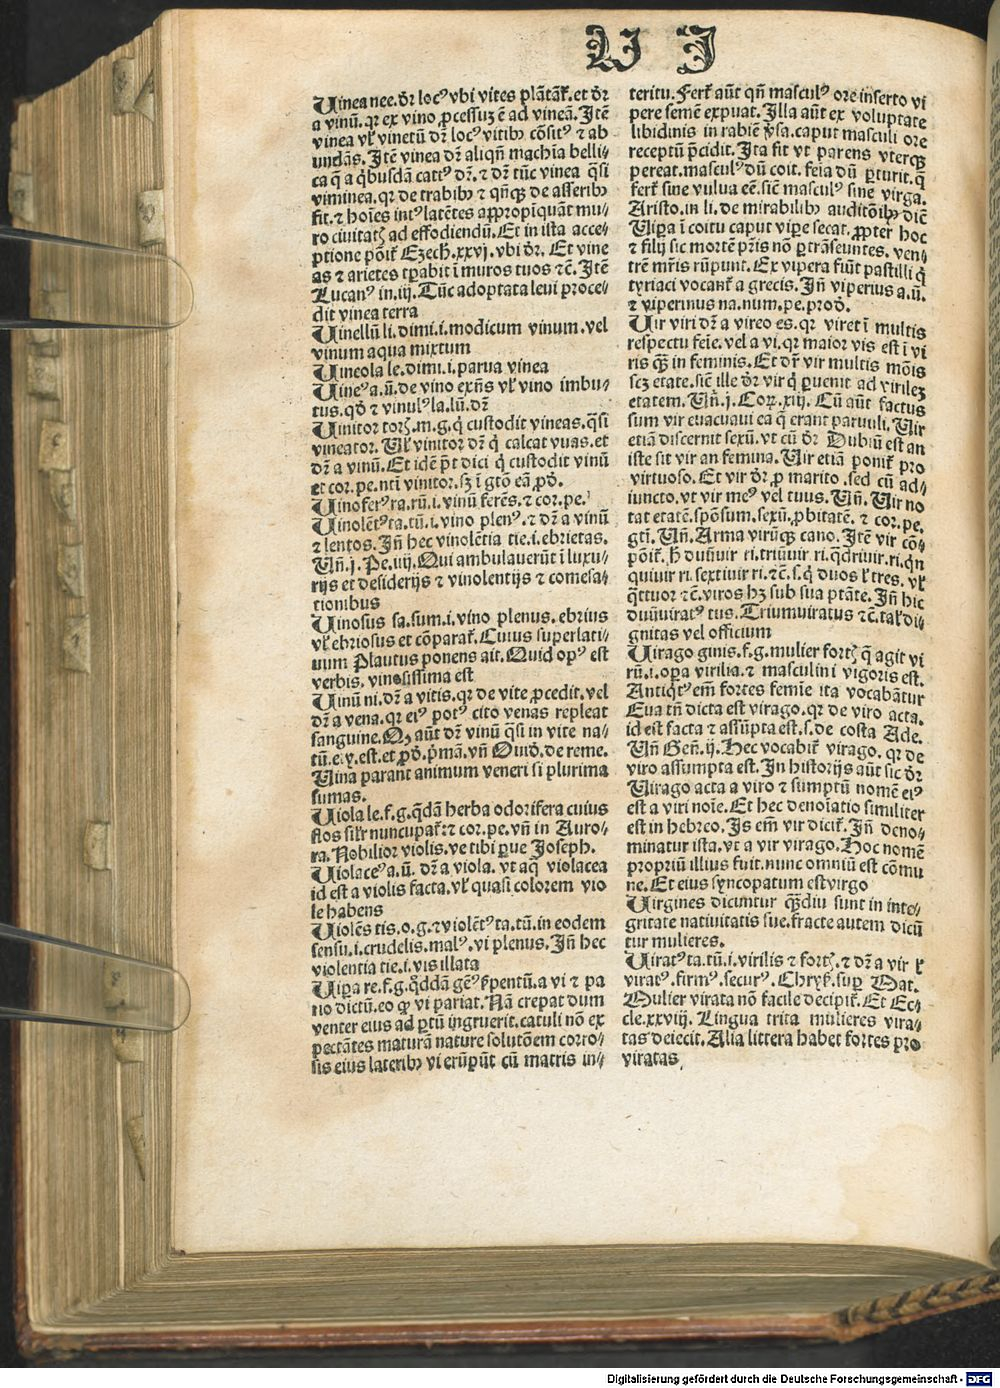 V J
Uinea nee. dr̄ locꝰ vbi vites plātāt᷑. et dr̄
a vinū. qꝛ ex vino ꝓcessuꝫ ē ad vineā. Jtē
vinea vl᷑ vinetū dr̄ locꝰ vitibꝫ cōsitꝰ ⁊ ab
undās. Jtē vinea dr̄ aliqn̄ machīa belli⸗
ca q̄ a q̇busdā cattꝰ dr̄. ⁊ dr̄ tūc vinea q̄si
viminea. qꝛ de trabibꝫ ⁊ qn̄qꝫ de asseribꝫ
fit. ⁊ hoīes intꝰ latētes appropīquāt mu⸗
ro ciuitatꝭ ad effodiendū. Et in ista acce⸗
ptione pōit᷑ Ezech̄. xxvj. vbi dr̄. Et vine
as ⁊ arietes tp̄abit ī muros tuos ⁊c̄. Jtē
Lucanꝰ in. iij. Tūc adoptata leui proce⸗
dit vinea terra
Uinellū li. dimi. i. modicum vinum. vel
vinum aqua mixtum
Uineola le. dimi. i. parua vinea
Uineꝰ a. ū. de vino exn̄s vl᷑ vino imbu⸗
tus. qd̄ ⁊ vinulꝰ la. lū. dr̄
Uinitor torꝭ. m. g. q̇ custodit vineas. q̄si
vineator. Ul᷑ vinitor dr̄ q̇ calcat vuas. et
dr̄ a vinū. Et idē pt̄ dici q̇ custodit vinū
et cor. pe. ntī vinitor. sꝫ ī gtō eā ꝓd̄.
Uinoferꝰ ra. rū. i. vinū ferēs. ⁊ cor. pe.
Uinolētꝰ ta. tū. i. vino plenꝰ. ⁊ dr̄ a vinū
⁊ lentos. Jn̄ hec vinolētia tie. i. ebrietas.
Un̄. j. Pe. iiij. Qui ambulauerūt ī luxu⸗
rijs et desiderijs ⁊ vinolentijs ⁊ comesa⸗
tionibus
Uinosus sa. sum. i. vino plenus. ebrius
vl᷑ ebriosus et cōparat᷑. Cuius superlati⸗
uum Plautus ponens ait. Quid opꝰ est
verbis. vinosissima est
Uinū ni. dr̄ a vitis. qꝛ de vite ꝓcedit. vel
dr̄ a vena. qꝛ eiꝰ potꝰ cito venas repleat
sanguine. Qꝫ aūt dr̄ vinū q̄si in vite na⸗
tū. e. y. est. et ꝓd̄. pͥmā. vn̄ Ouid̄. de reme.
Uina parant animum veneri si plurima
sumas.
Uiola le. f. g. q̄dā herba odorifera cuius
flos sil᷑r nuncupat᷑: ⁊ cor. pe. vn̄ in Auro⸗
ra. Nobilior violis. ve tibi praue Joseph.
Uiolaceꝰ a. ū. dr̄ a viola. vt aq̄ violacea
id est a violis facta. vl᷑ quasi colorem vio
le habens
Uiolēs tis. o. g. ⁊ violētꝰ ta. tū. in eodem
sensu. i. crudelis. malꝰ. vi plenus. Jn̄ hec
violentia tie. i. vis illata
Uipa re. f. g. qͦddā genꝰ ẜpentū. a vi ⁊ pa
rio dictū. eo qꝙ vi pariat. Nā crepat dum
venter eius ad ꝑtū ingruerit. catuli nō ex
pectātes maturā nature solutōem corro⸗
sis eius lateribꝫ vi erūpūt cū matris in⸗
teritu. Fert᷑ aūt qn̄ masculꝰ ore inserto vi
pere semē expuat. Jlla aūt ex voluptate
libidinis in rabiē ꝟsa. caput masculi ore
receptū p̄cidit. Jta fit vt parens vterqꝫ
pereat. masculꝰ dū coit. feīa dū ꝑturit. q̄
fert᷑ sine vulua eē. sicē masculꝰ sine virga.
Aristo. in li. de mirabilibꝫ auditōibꝫ diē
Uipa ī coitu caput vipe secat. ꝓpter hoc
⁊ filij sic mortē pr̄is nō ꝑtrāseuntes. ven⸗
trē mr̄is rūpunt. Ex vipera fiūt pastilli q̇
tyriaci vocant᷑ a grecis. Jn̄ viperius a. ū.
⁊ viperinus na. num. pe. prod̄.
Uir viri dr̄ a vireo es. qꝛ viret ī multis
respectu feīe. vel a vi. qꝛ maior vis est ī vi
ris qꝫ in feminis. Et dr̄ vir multis mōis
scꝫ etate. sicē ille dr̄ vir q̇ ꝑuenit ad virileꝫ
etatem. Un̄. j. Cor. xiij. Cū aūt factus
sum vir euacuaui ea q̄ erant paruuli. Uir
etiā discernit sexū. vt cū dr̄ Dubiū est an
iste sit vir an femina. Uir etiā ponit᷑ pro
virtuoso. Et vir dr̄ ꝓ marito. sed cū ad⸗
iuncto. vt vir meꝰ vel tuus. Un̄. Uir no
tat etatē. spōsum. sexū. ꝓbitatē. ⁊ cor. pe.
gtī. Un̄. Arma virūqꝫ cano. Jtē vir cō⸗
pōit᷑. h̄ duūuir ri. triūuir. ri. q̄driuir. ri. q̇n
quiuir ri. sextiuir ri. ⁊c̄. s. q̇ duos l᷑ tres. vl᷑
q̄ttuor ⁊c̄. viros hꝫ sub sua ptāte. Jn̄ hic
duūuiratꝰ tus. Triumuiratus ⁊c̄. tal᷑ di⸗
gnitas vel officium
Uirago ginis. f. g. mulier fortꝭ q̄ agit vi
rū. i. oꝑa virilia. ⁊ masculini vigoris est.
Antiq̇tꝰ em̄ fortes femīe ita vocabātur
Eua tn̄ dicta est virago. qꝛ de viro acta.
id est facta ⁊ assūpta est. s. de costa Ade.
Un̄ Gen̄. ij. Hec vocabit᷑ virago. qꝛ de
viro assumpta est. Jn historijs aūt sic dr̄
Uirago acta a viro ⁊ sumptū nomē eiꝰ
est a viri noīe. Et hec denoīatio similiter
est in hebreo. Js em̄ vir dicit᷑. Jn̄ deno⸗
minatur ista. vt a vir virago. Hoc nomē
propriū illius fuit. nunc omniū est cōmu
ne. Et eius syncopatum est virgo
Uirgines dicuntur qꝫdiu sunt in inte⸗
gritate natiuitatis sue. fracte autem dicū
tur mulieres.
Uiratꝰ ta. tū. i. virilis ⁊ fortꝭ. ⁊ dr̄ a vir l᷑
viratꝰ. firmꝰ. securꝰ. Chryẜ. suꝑ Mat.
Mulier virata nō facile decipit᷑. Et Ec⸗
cle. xxviij. Lingua trita mulieres vira⸗
tas deiecit. Alia littera habet fortes pro
viratas.
Digitalisierung gefördert durch die Deutsche Forschungsgemeinschaft - DFG